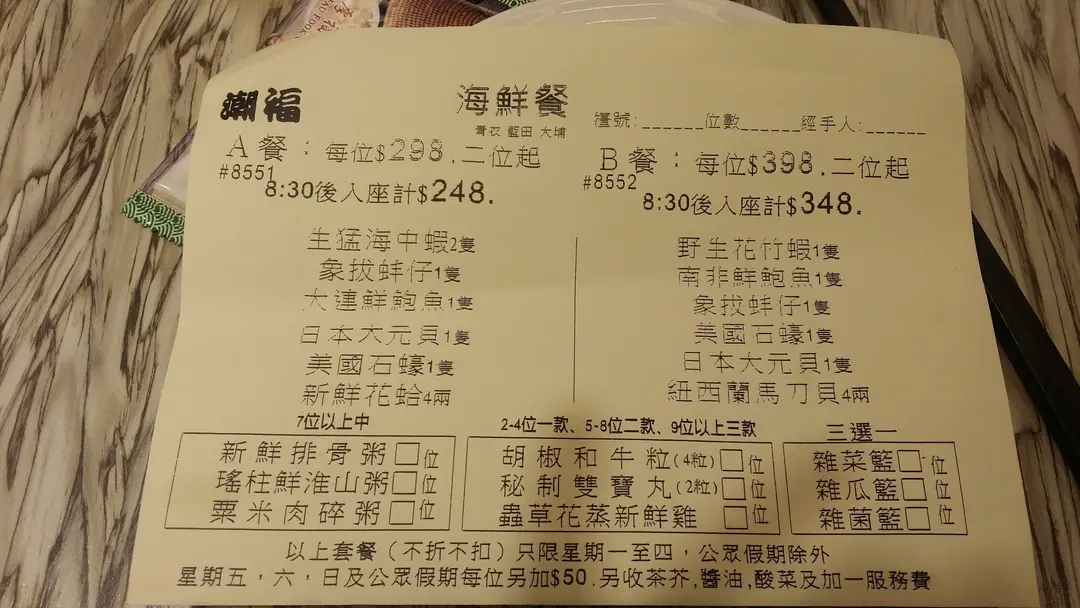 潮福
海鮮餐
青衣 藍田 大埔
檯號:______位數______經手人:______
A餐：每位$298.二位起
#8551
8:30後入座計$248.
B餐：每位$398.二位起
#8552
8:30後入座計$348.
生猛海中蝦2隻
象拔蚌仔1隻
大連鮮鮑魚1隻
日本大元貝1隻
美國石蠔1隻
新鮮花蛤4兩
野生花竹蝦1隻
南非鮮鮑魚1隻
象拔蚌仔1隻
美國石蠔1隻
日本大元貝1隻
紐西蘭馬刀貝4兩
7位以上中
新鮮排骨粥□位
瑤柱鮮淮山粥□位
粟米肉碎粥□位
2-4位一款、5-8位二款、9位以上三款
胡椒和牛粒(4粒)□位
秘制雙寶丸(2粒)□位
蟲草花蒸新鮮雞 □位
三選一
雜菜籃□位
雜瓜籃□位
雜菌籃□位
以上套餐（不折不扣）只限星期一至四，公眾假期除外
星期五，六，日及公眾假期每位另加$50.另收茶芥,醬油,酸菜及加一服務費